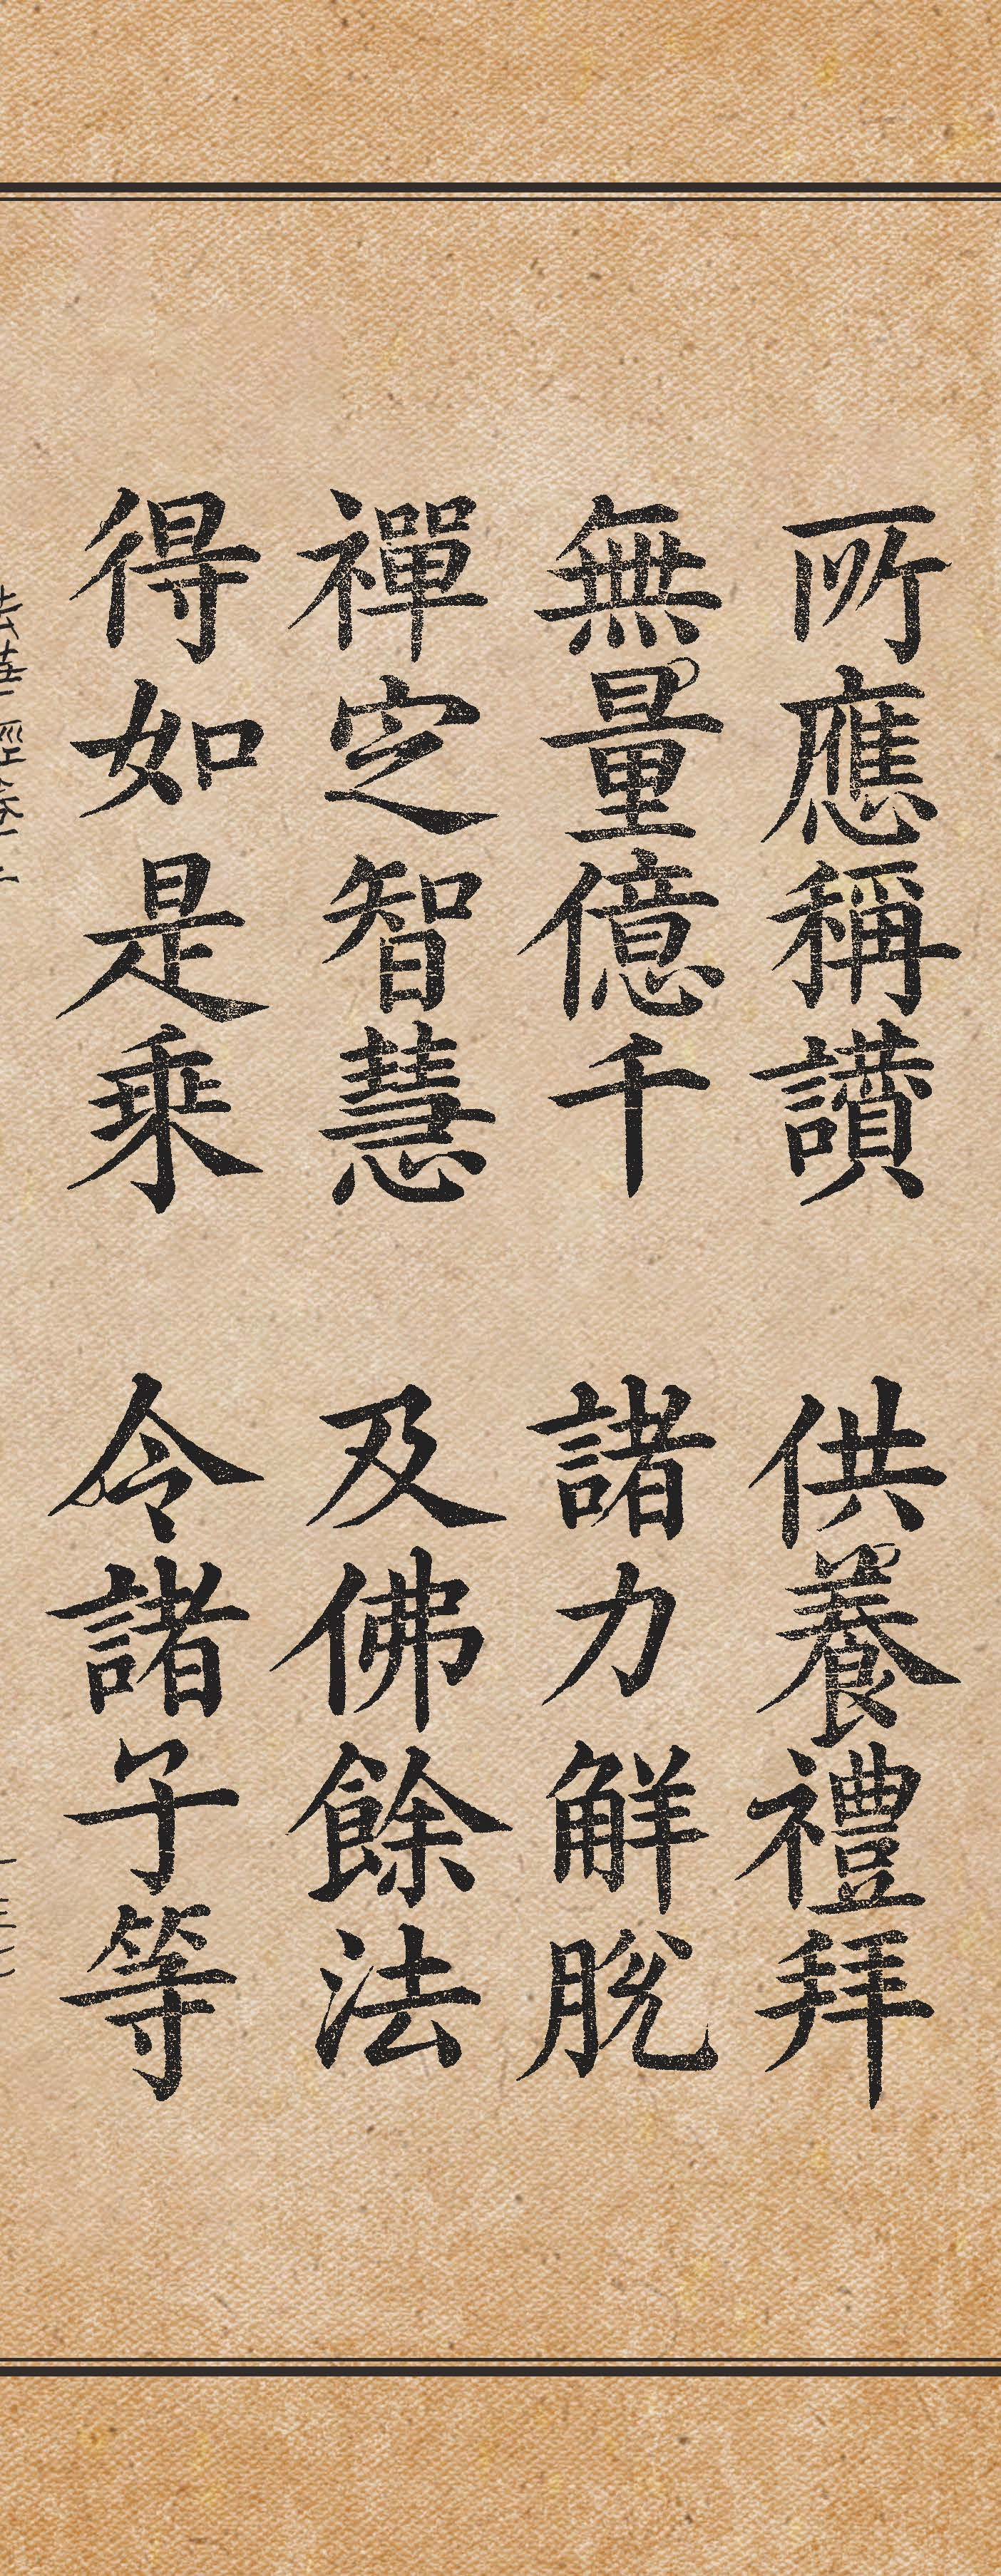 所應稱讃　供養禮拜
無量億千　諸力解脫
禪定智慧　及佛餘法
得如是乘　令諸子等